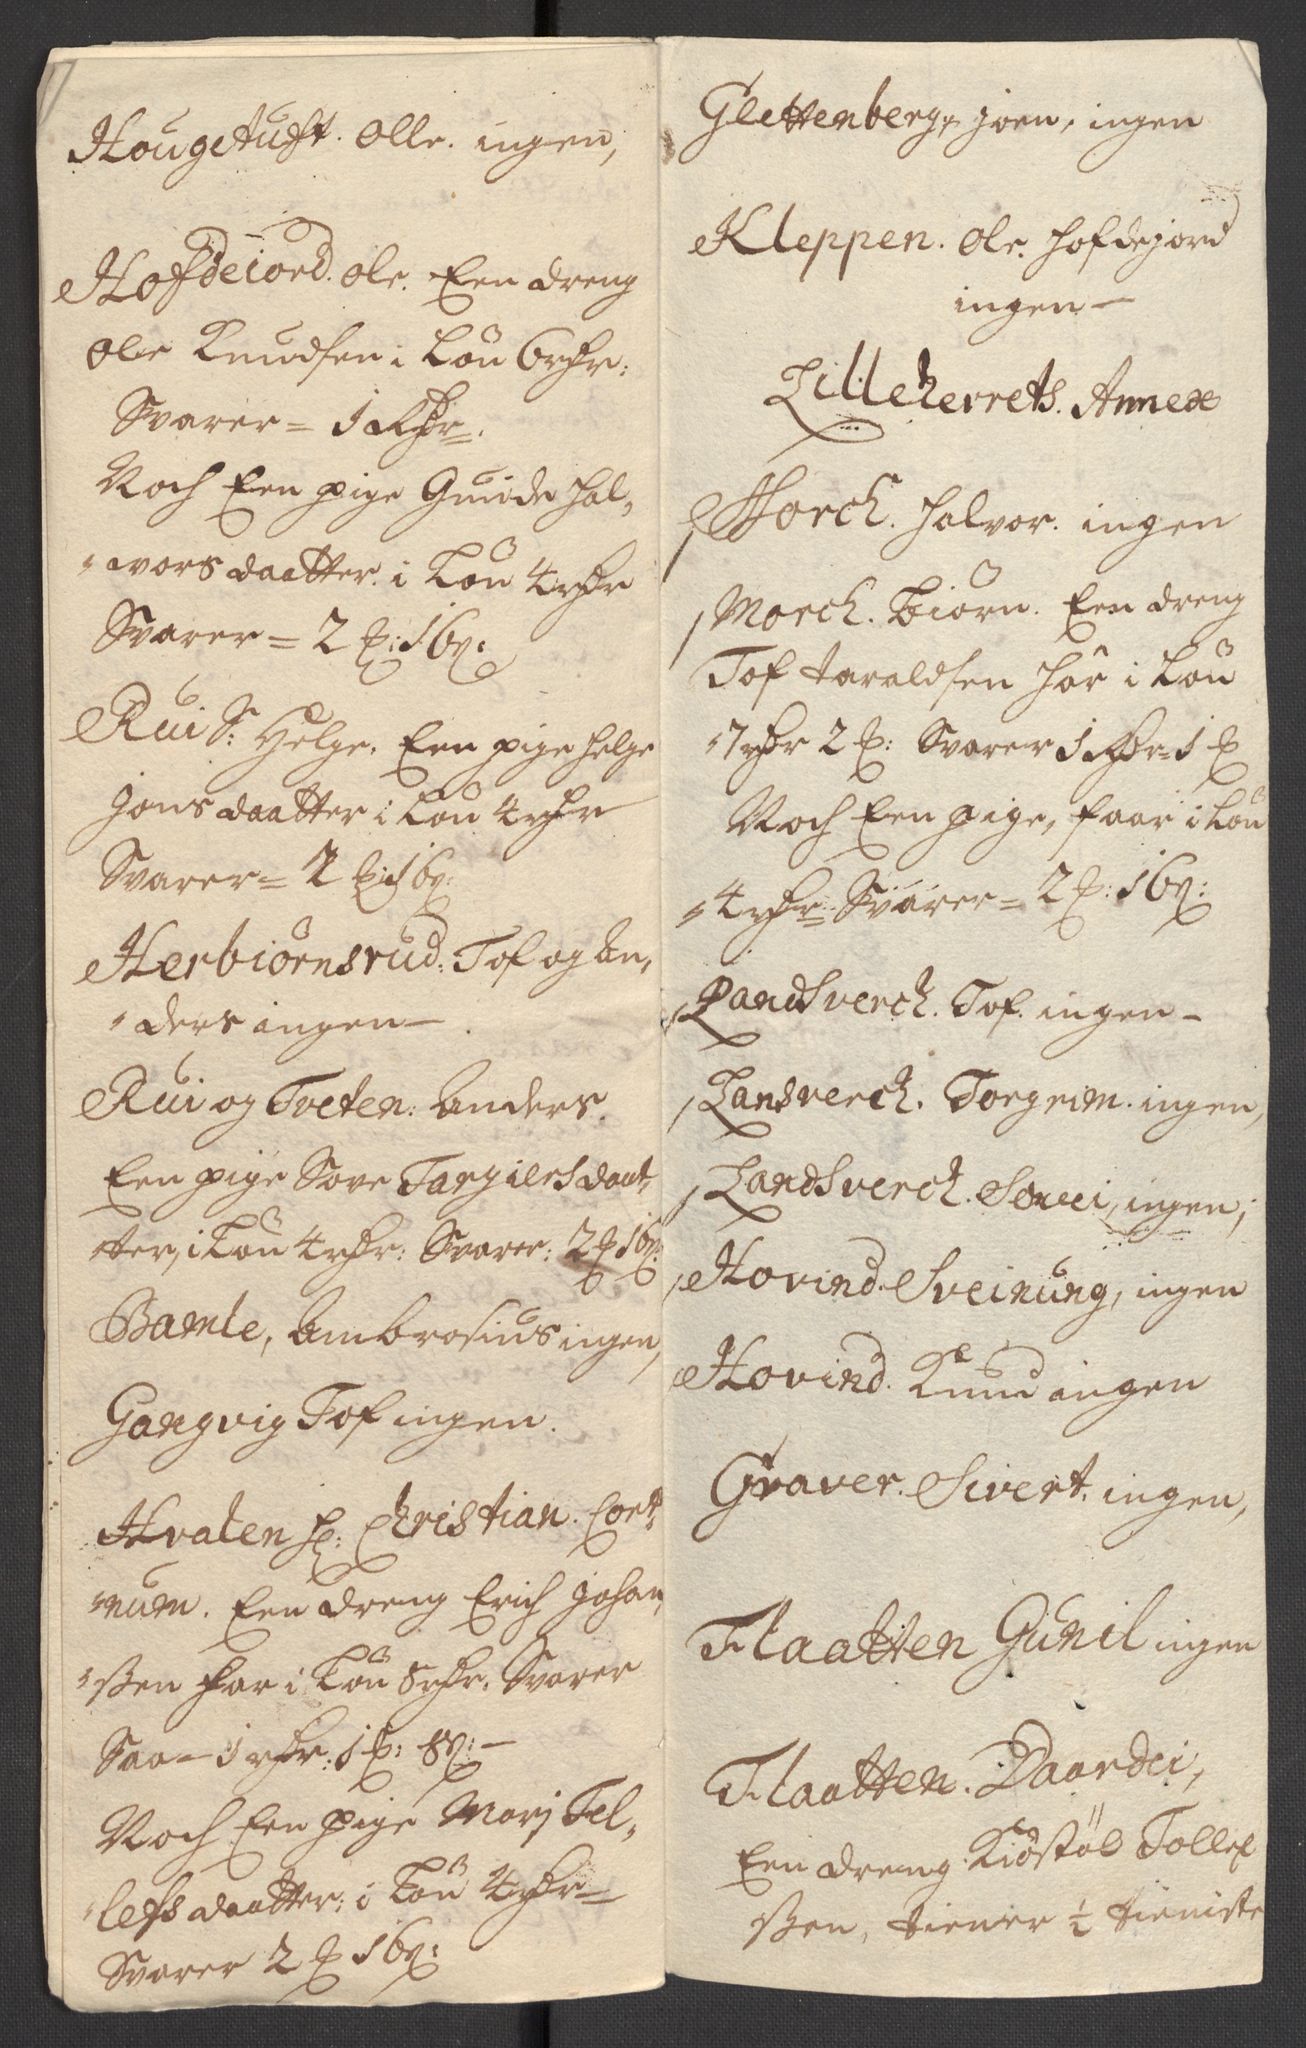 Hougetufft. Olle. ingen,
Hofdeiord. Ole. Een dreng
Ole Knudsen i Lön 6 rdr:
Svarer = 1 Rdr.
Noch Een pige Gunde Hal,
vors daatter. i Lön 4 rdr
Svarer = 2 ß: 16 s:
Rui S: Helge. Een pige Helge
Jons daatter i Lön 4 rdr
Svarer = 2 ß: 16 s:
Herbiörnsrud: Tof og An,
ders ingen —
Rui og Tveten: Anders.
Een pige Sove Targiers daat,
ter, i Lön 4 rdr: Svarer: 2 ß 16 s:
Bamle, Ambrosius ingen,
Gangvig Tof ingen.
Hvalen Hr: Christian. Cort,
num. Een dreng Erich Johan,
ßen har i Lön 8 rdr. Svarer
Saa — 1 rdr: 1 ß: 8 s: —
Noch Een pige Marj Tel,
lefs daatter: i Lön 4 rdr =
Svarer 2 ß 16 s:
Glettenberg, Joen, ingen
Kleppen. Ole. Hofdejord
ingen —
Lilleherrets. Annex
Morch. Halvor. ingen
Morch. Biörn. Een dreng
Tof Taraldsen har i Lön
7 rdr 2 ß: Svarer 1 Rdr = 1 ß
Noch Een pige, faar i Lön
4 rdr. Svarer = 2 ß: 16 s:
Landsverch. Tof. ingen —
Lansverch. Torgrim. ingen,
Landsverch. ingen,
Hovind. Sveinung, ingen
Hovind. Knud ingen
Graver. Sivert. ingen,
Flaatten Gunil ingen
Flaatten. Daardei,
Een dreng Kiöstöl Tollef
ßen, tiener ½ tieniste